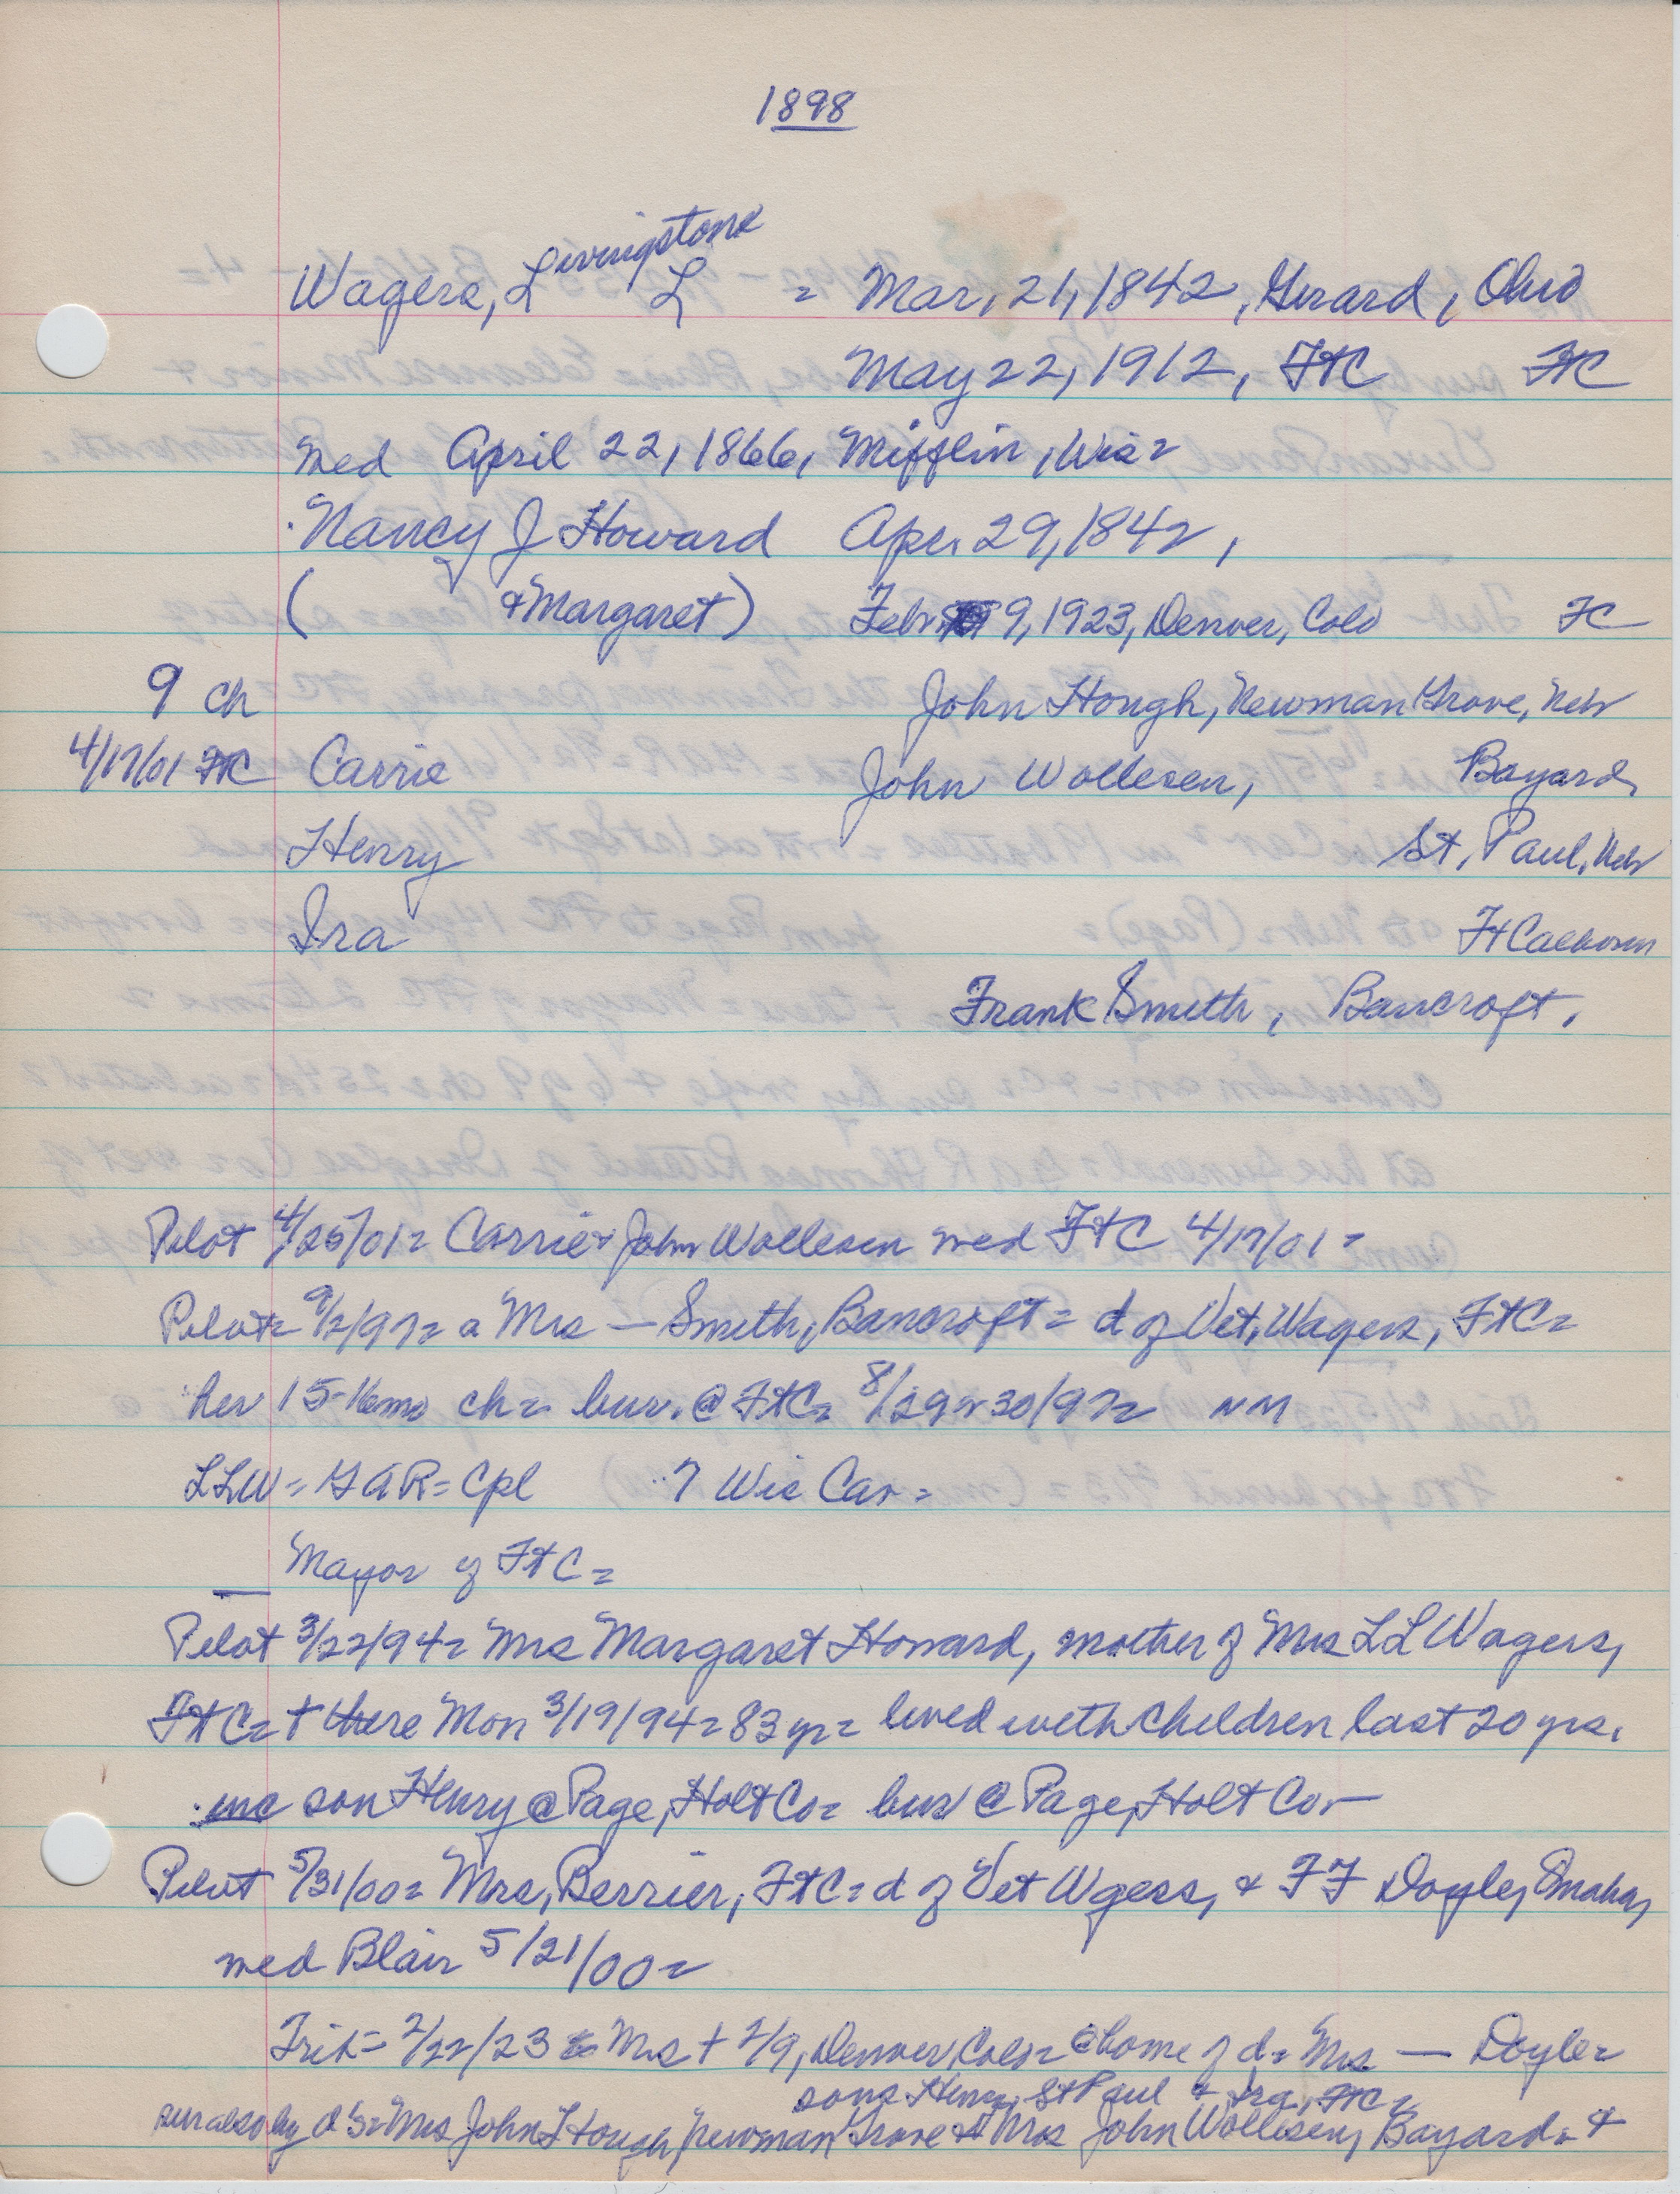 1898
Wagers, Livingstone L = Mar, 21, 1842, Girard, Ohio
May 22, 1912, FtC FtC
med April 22, 1866, Mifflin, Wis=
Nancy J Howard Apr. 29, 1842,
( & Margaret) Feb 9, 1923, Denver, Colo FC
9 ch John Hough, Newman Grove, Neb
4/17/01 FtC Carrie John Wollesen, Bayard,
Henry St, Paul, Neb
Ira Ft Calhoun
Frank Smith, Bancroft.
Pilot 4/25/01= Carrie & John Wollesen med FtC 4/17/01=
Pilot= 9/2/97= a Mrs — Smith, Bancroft= d of Vet, Wagers, FtC=
her 15-16mo ch= bur. @ FtC= 8/29 or 30/97= NM
LLW= GAR= Cpl 7 Wis Cav=
Mayor of FtC=
Pilot 3/22/94= Mrs Margaret Howard, mother of Mrs LL Wagers,
FtC= † there Mon 3/19/94= 83 yr= lived with children last 20 yrs.
inc son Henry @ Page, Holt Co= bur @ Page, Holt Co—
Pilot 5/31/00= Mrs, Berrier, FtC= d of Vet Wgess, & FF Doyle, Omaha,
med Blair 5/21/00=
Trib= 2/22/23 Mrs † 2/9, Denver, Colo= @ home of d= Mrs — Doyle=
sons Henry, St Paul & Ira, FtC=
sur also by d's= Mrs John Hough, Newman Grove & Mrs John Wollesen, Bayard= &